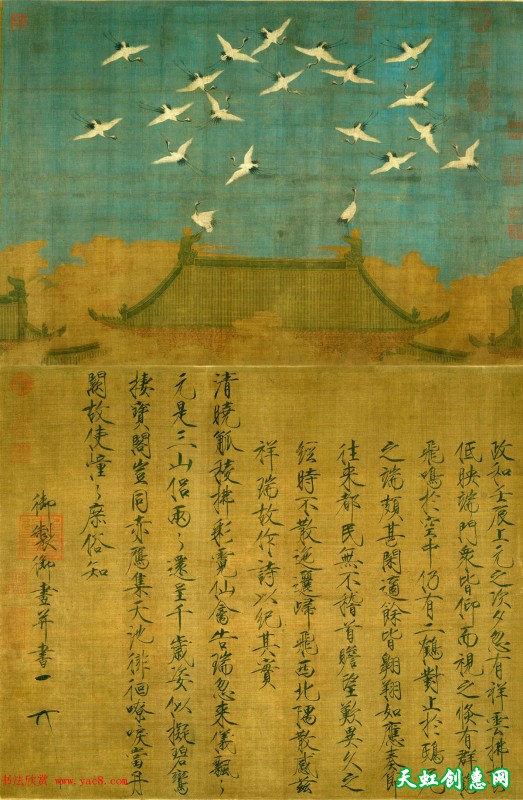 政和壬辰上元之次夕忽有祥雲拂鬱
低映端門衆皆仰而視之倏有群
飛鳴於空中仍有二鶴對止於鴟
之端頗甚閑適餘皆翱翔如應奏節
往來都民無不稽首瞻望歎異久之
經時不散迤邐歸飛西北隅散感茲
祥瑞故作詩以紀其實
清曉觚稜拂彩霓仙禽告瑞忽來儀飄〻
元是三山侶兩〻還呈千歲姿似擬碧鸞
棲寶閣豈同赤鴈集天池徘徊嘹唳當丹
闕故使憧〻庶俗知
御製御畫并書
书法欣赏 www.yac8.com
天虹创惠网